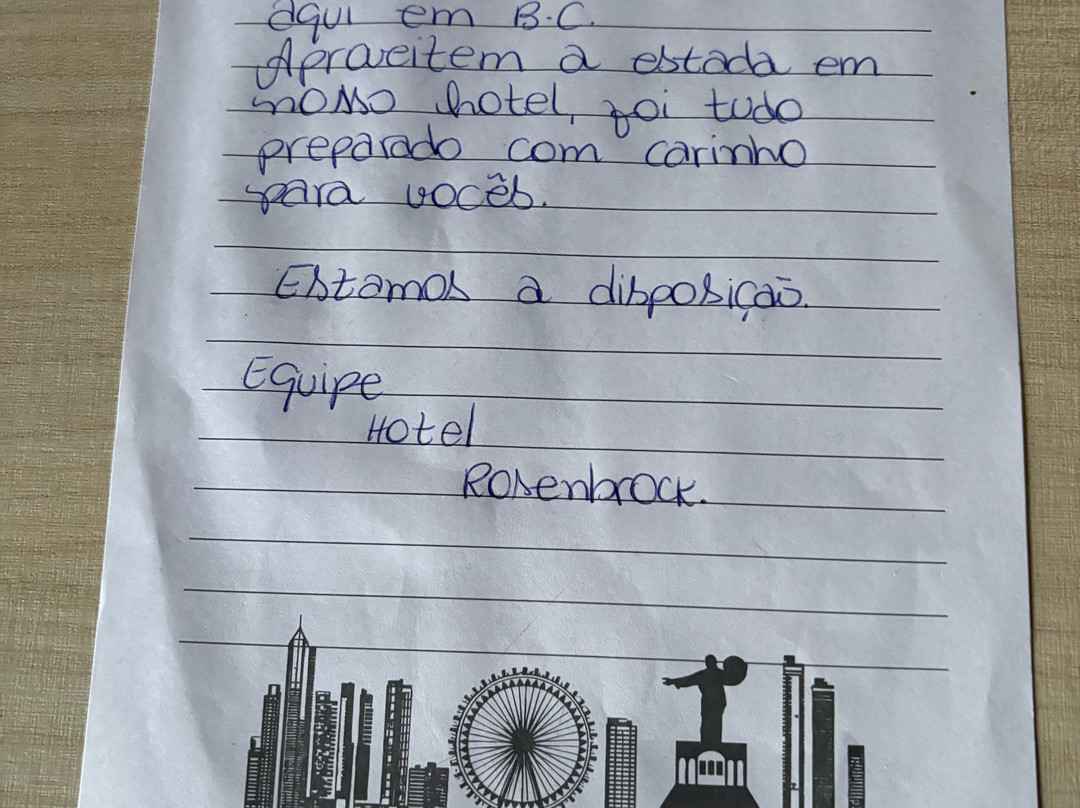 aqui em B.C.
Aproveitem a estada em
nosso hotel, foi tudo
preparado com carinho
para vocês.
Estamos a disposição.
Equipe
Hotel
Rosenbrock.